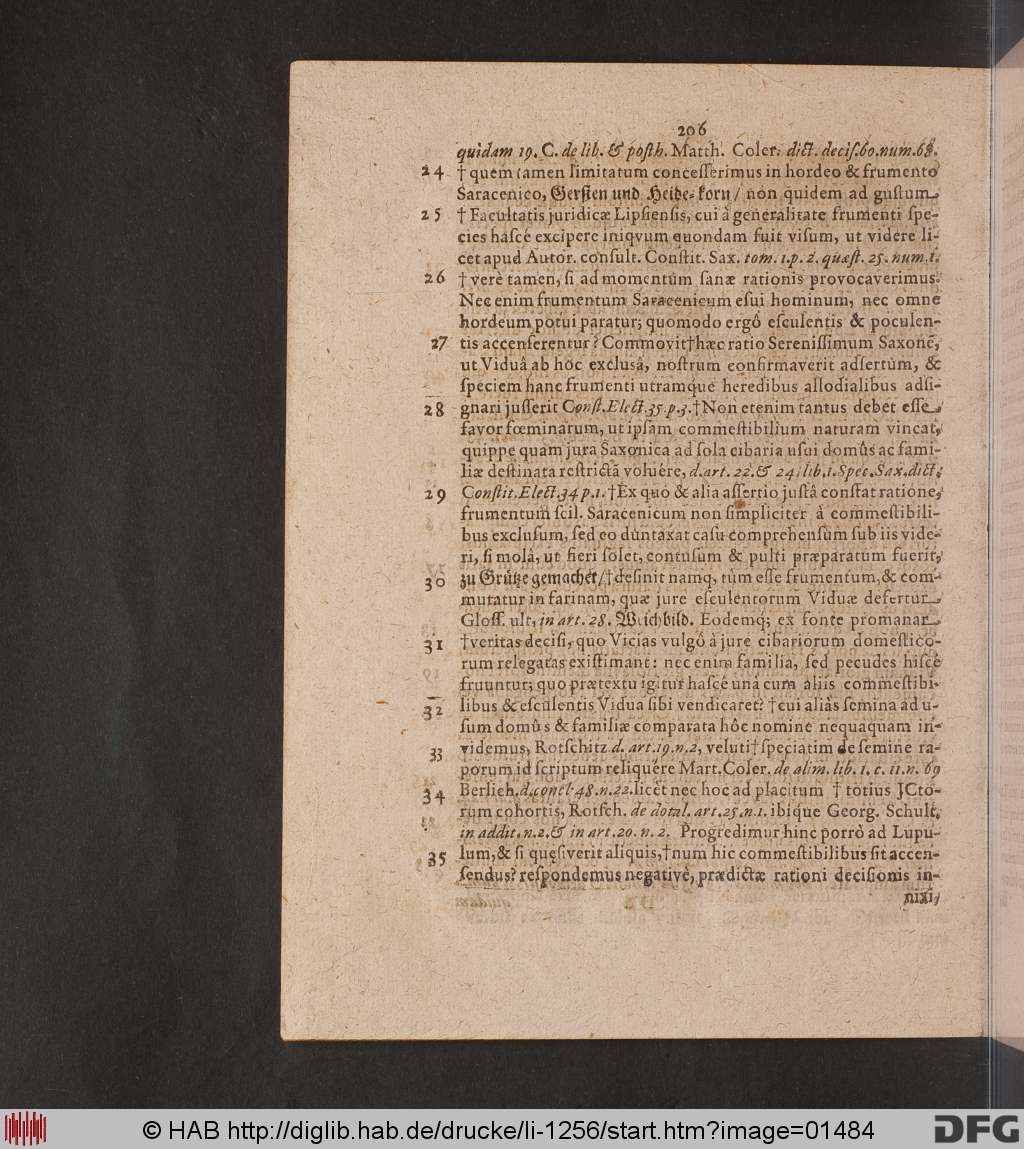 206
quidam 19. C. de lib. & posth. Matth. Coler. dict. decis. 60. num. 68.
24 † quem tamen limitatum concesserimus in hordeo & frumento
Saracenico, Gersten und Heide-korn / non quidem ad gustum
25 † Facultatis juridicæ Lipsiensis, cui à generalitate frumenti spe-
cies hasce excipere iniqvum quondam fuit visum, ut videre li-
cet apud Autor. consult. Constit. Sax. tom. 1. p. 2. quæst. 25. num. 1.
26 † verè tamen, si ad momentum sanæ rationis provocaverimus.
Nec enim frumentum Saracenicum esui hominum, nec omne
hordeum potui paratur; quomodo ergô esculentis & poculen-
27 tis accenserentur? Commovit † hæc ratio Serenissimum Saxonẽ,
ut Viduâ ab hôc exclusâ, nostrum confirmaverit adsertum, &
speciem hanc frumenti utramque heredibus allodialibus adsi-
28 gnari jusserit Const. Elect. 35. p. 3. † Non etenim tantus debet esse
favor fœminarum, ut ipsam commestibilium naturam vincat,
quippe quam jura Saxonica ad sola cibaria usui domûs ac fami-
liæ destinata restrictã voluêre, d. art. 22. & 24. lib. 1. Spec. Sax. dict.
29 Constit. Elect. 34 p. 1. † Ex quo & alia assertio justâ constat ratione,
frumentum scil. Saracenicum non simpliciter à commestibili-
bus exclusum, sed eo duntaxat casu comprehensum sub iis vide-
ri, si molâ, ut fieri solet, contusum & pulti præparatum fuerit,
30 zu Grütze gemachet / † desinit namq, tùm esse frumentum, & com-
mutatur in farinam, quæ jure esculentorum Viduæ defertur
Gloss. ult, in art. 28. Weichbild. Eodemq; ex fonte promanar
31 † veritas decisi, quo Vicias vulgô à jure cibariorum domestico-
rum relegatas existimant: nec enim familia, sed pecudes hisce
fruuntur; quo prætextu igitur hasce unà cum aliis commestibi-
32 libus & esculentis Vidua sibi vendicaret? † cui aliàs semina ad u-
sum domûs & familiæ comparata hôc nomine nequaquam in-
33 videmus, Rotschitz d. art. 19. n. 2, veluti † speciatim de semine ra-
porum id scriptum reliquêre Mart. Coler. de alim. lib. 1. c. 11. n. 69
34 Berlich. d. concl. 48. n. 22. licèt nec hoc ad placitum † totius JCto-
rum cohortis, Rotsch. de dotal. art. 25. n. 1. ibique Georg. Schult.
in addit. n. 2. & in art. 20. n. 2. Progredimur hinc porrò ad Lupu-
35 lum, & si quęsiverit aliquis, † num hic commestibilibus sit accen-
sendus? respondemus negativè, prædictæ rationi decisionis in-
nixi,
© HAB http://diglib.hab.de/drucke/li-1256/start.htm?image=01484
DFG